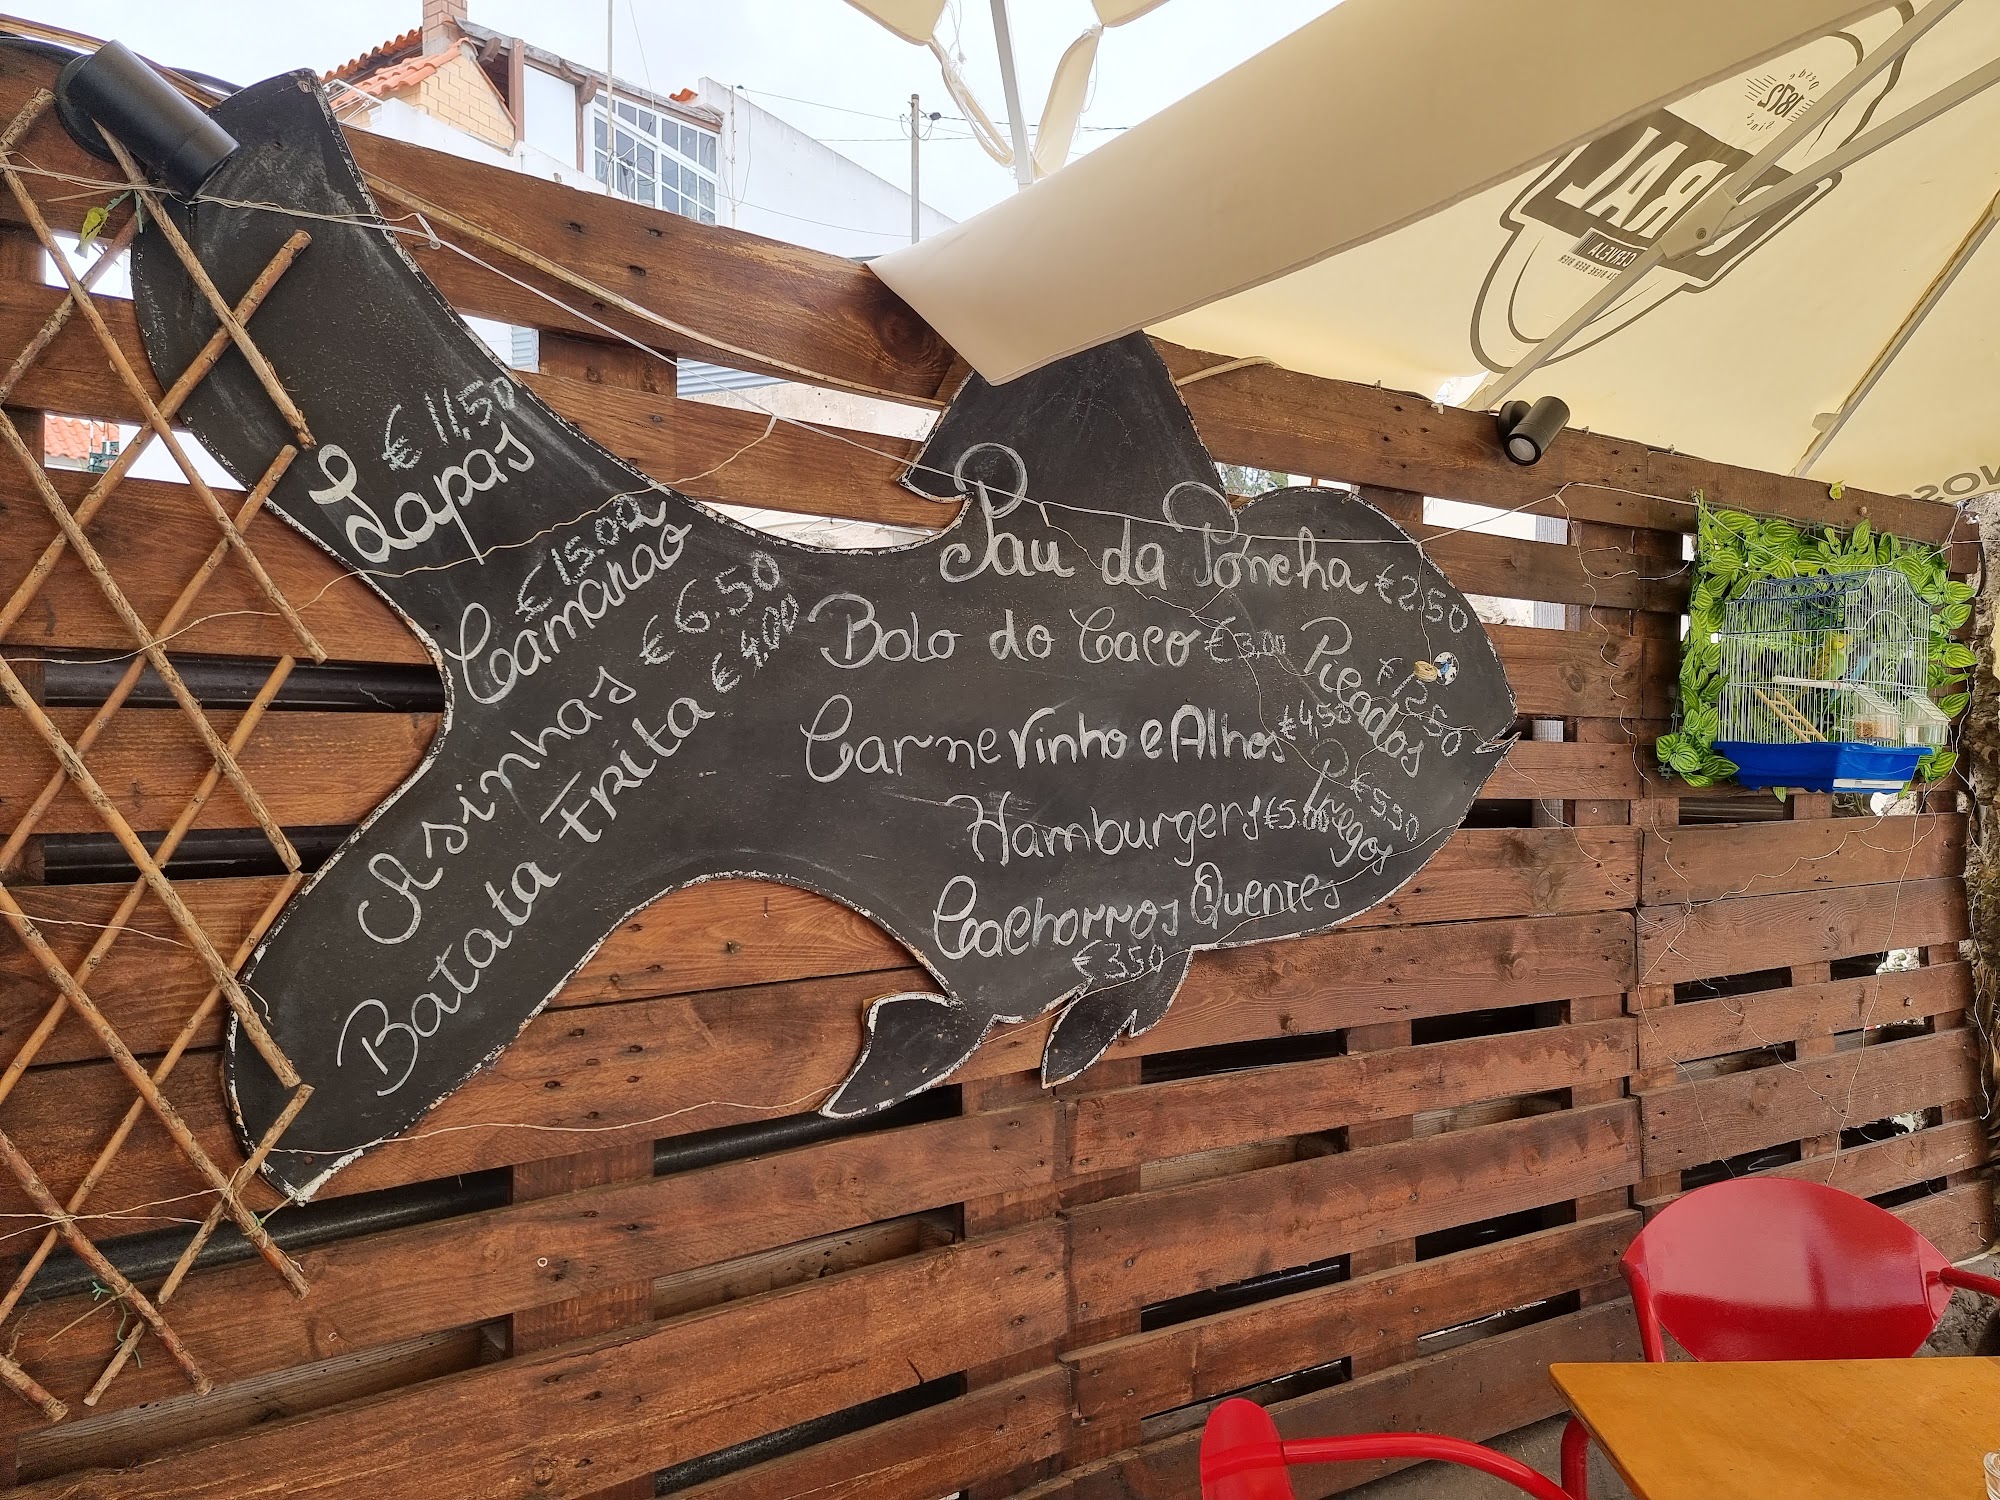 € 11,50
Lapas
€ 15.00
Camarao
Asinhas € 6.50
Batata Frita € 4.00
Pau da Poncha € 2.50
Bolo do Caco € 3.00
Carne Vinho e Alhos € 4,50
Hamburgers € 5.00
Cachorros Quentes
€ 3.50
Picados
€ 12.50
Pregos
€ 5.50
desde
1872
since
CORAL
CERVEJA